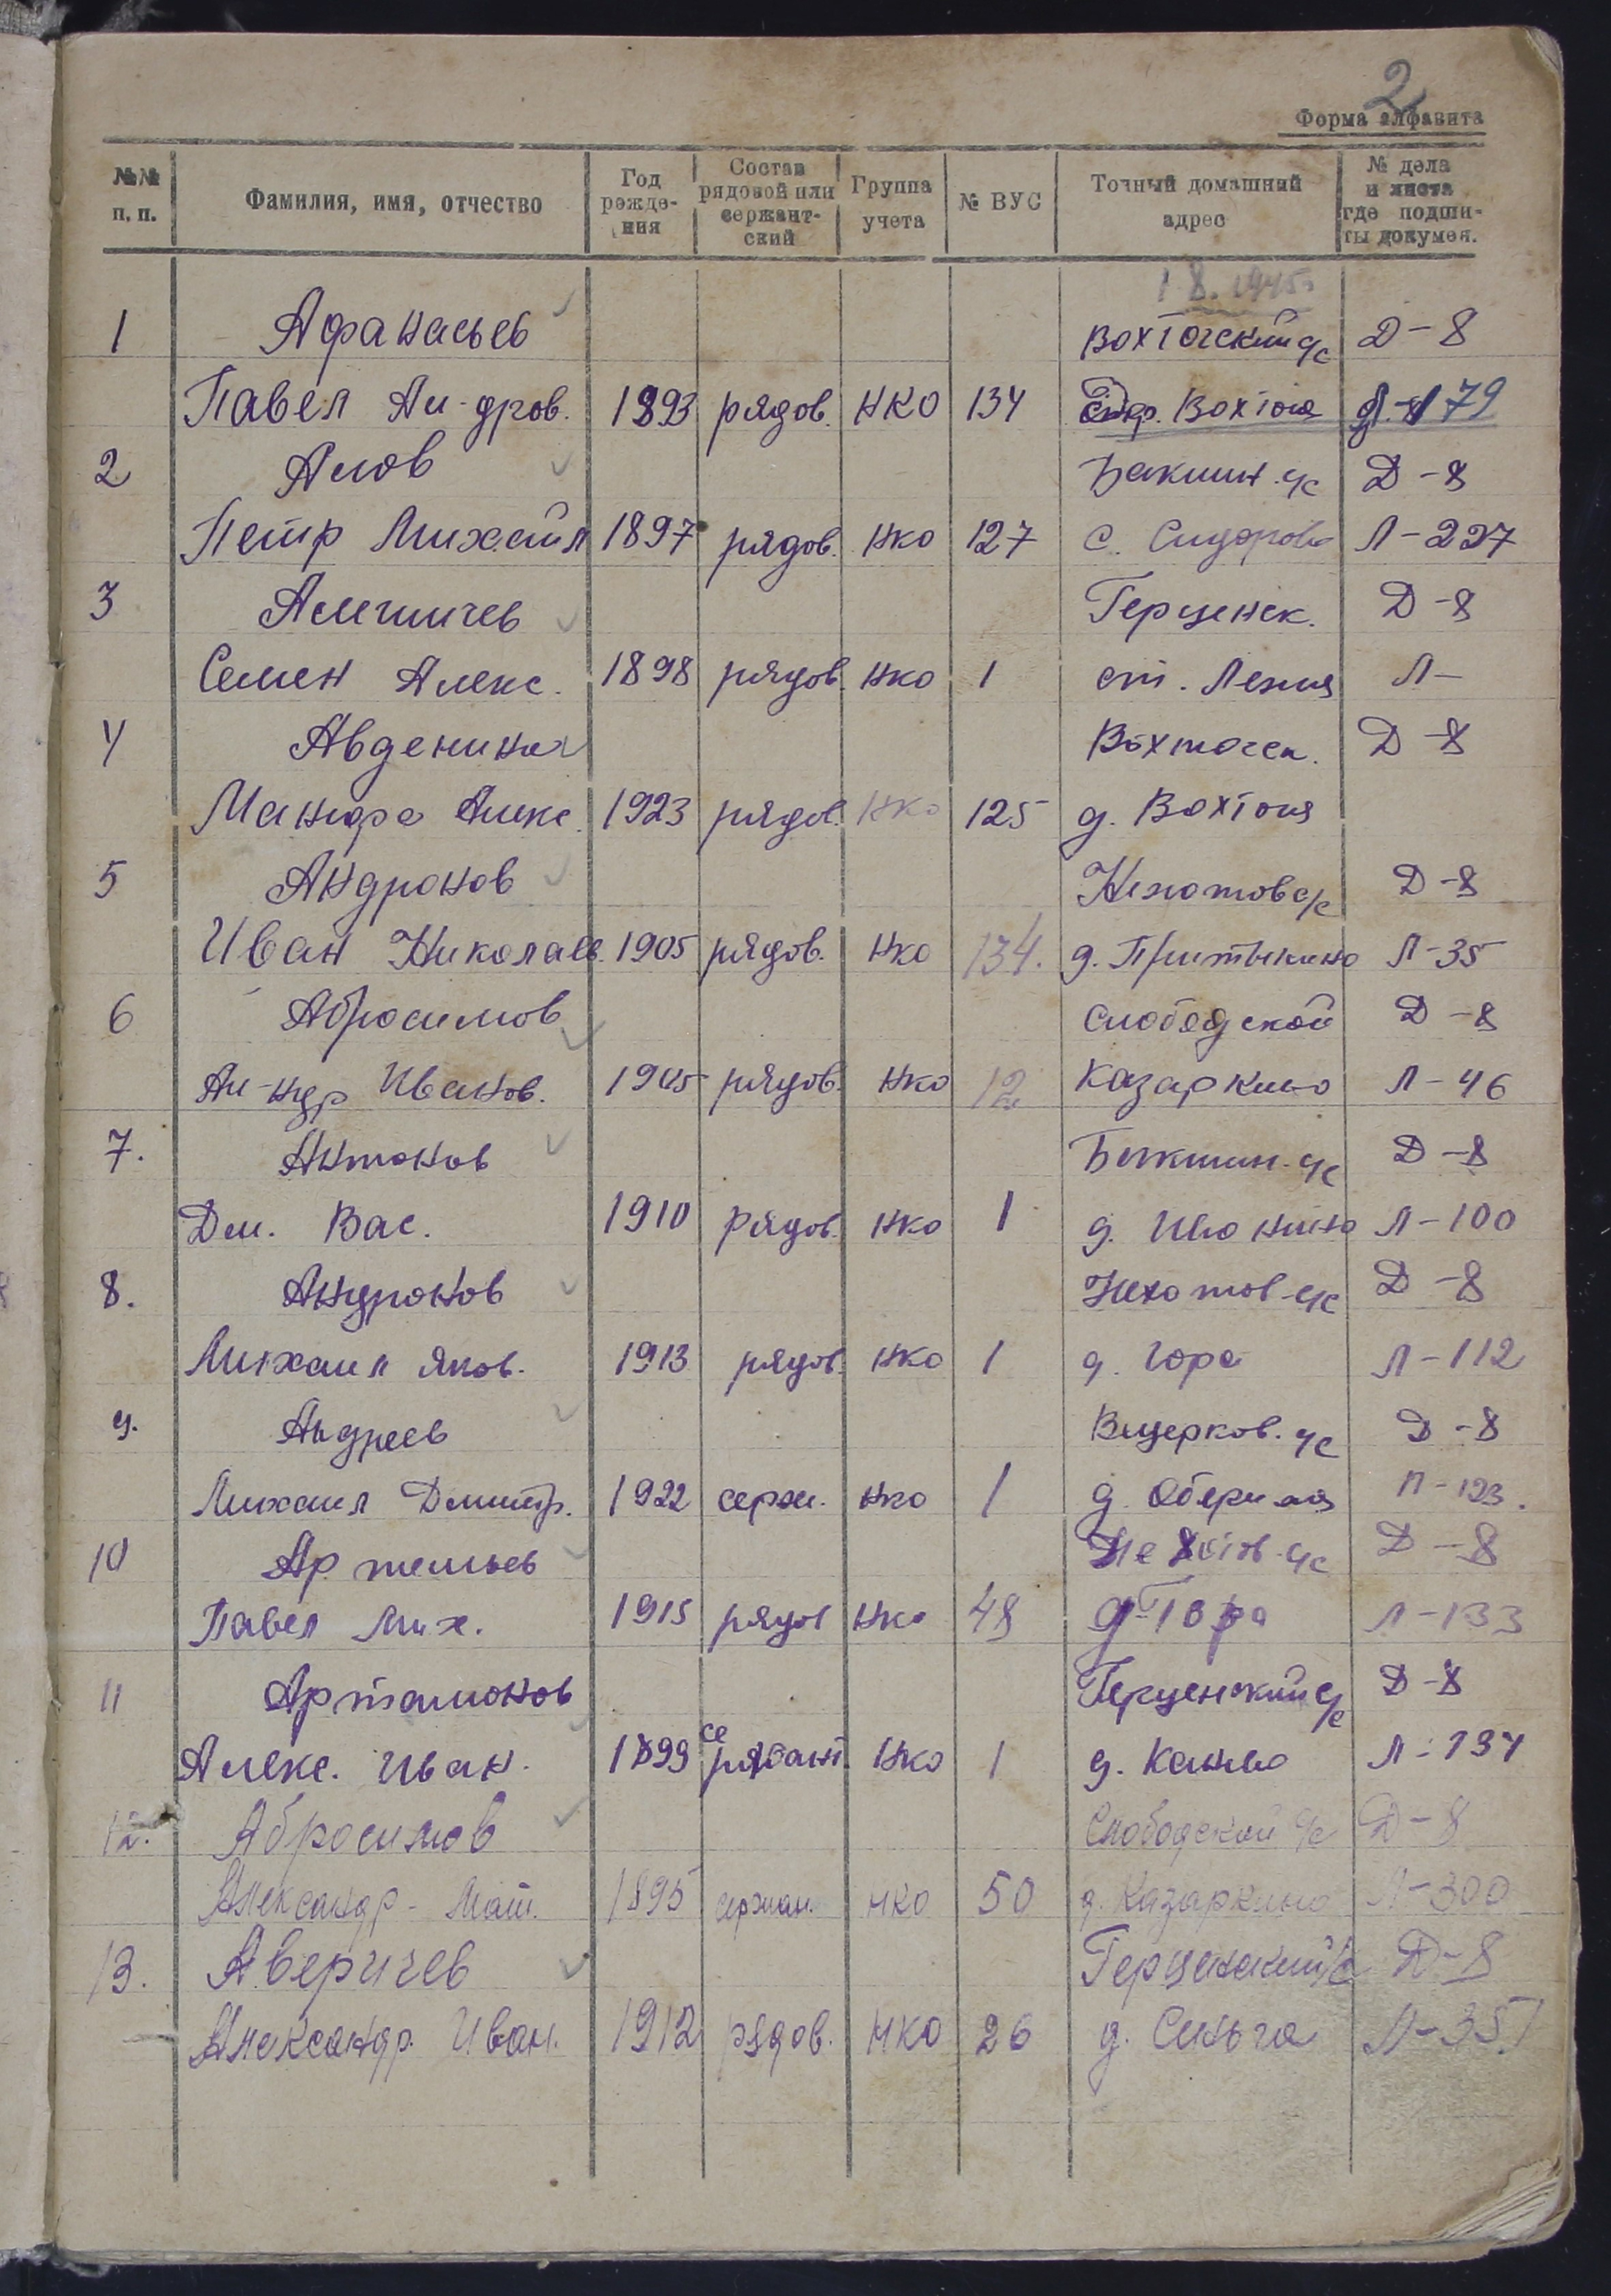 2
Форма алфавита
№№ п. п. | Фамилия, имя, отчество | Год рожде-ния | Состав рядовой или сержант-ский | Группа учета | № ВУС | Точный домашний адрес | № дела и листа где подши-ты докумен.
1 8. 1945г
1 Афанасьев Вохтогский с/с Д-8
Павел Ал-дров. 1893 рядов. НКО 134 Вохтога 179
2 Алов Бакшин. с/с Д-8
Петр Михайл 1897 рядов. НКО 127 с. Сидорово Л-227
3 Алешичев Герценск. Д-8
Семен Алекс. 1898 рядов. НКО 1 ст. Лежа Л-
4 Авденина Вохтогск. Д-8
Алекс. 1923 рядов. НКО 125 д. Вохтога
5 Андронов с/с Д-8
Иван Николаев. 1905 рядов. НКО 134. д. Притыкино Л-35
6 Абросимов Слободской Д-8
Ал-ндр Иванов. 1905 рядов. НКО 12 Казаркино Л-46
7. Антонов Бакшин. с/с Д-8
Дм. Вас. 1910 рядов. НКО 1 д. Л-100
8. Андронов Нехотов. с/с Д-8
Михаил Яков. 1913 рядов. НКО 1 д. Гора Л-112
9. Андреев с/с Д-8
Михаил Дмитр. 1922 серж. НКО 1 д. Л-123.
10 Артемьев Нехотов. с/с Д-8
Павел Мих. 1915 рядов НКО 48 д. Гора Л-133
11 Артамонов Герценский с/с Д-8
Алекс. Иван. 1899 НКО 1 д. Л-134
12. Абросимов Слободской с/с Д-8
Александр. Мат. 1895 сержан. НКО 50 д. Казаркино Л-300
13. Аверичев Герценский с/с Д-8
Александр. Иван. 1912 рядов. НКО 26 д. Синьга Л-351